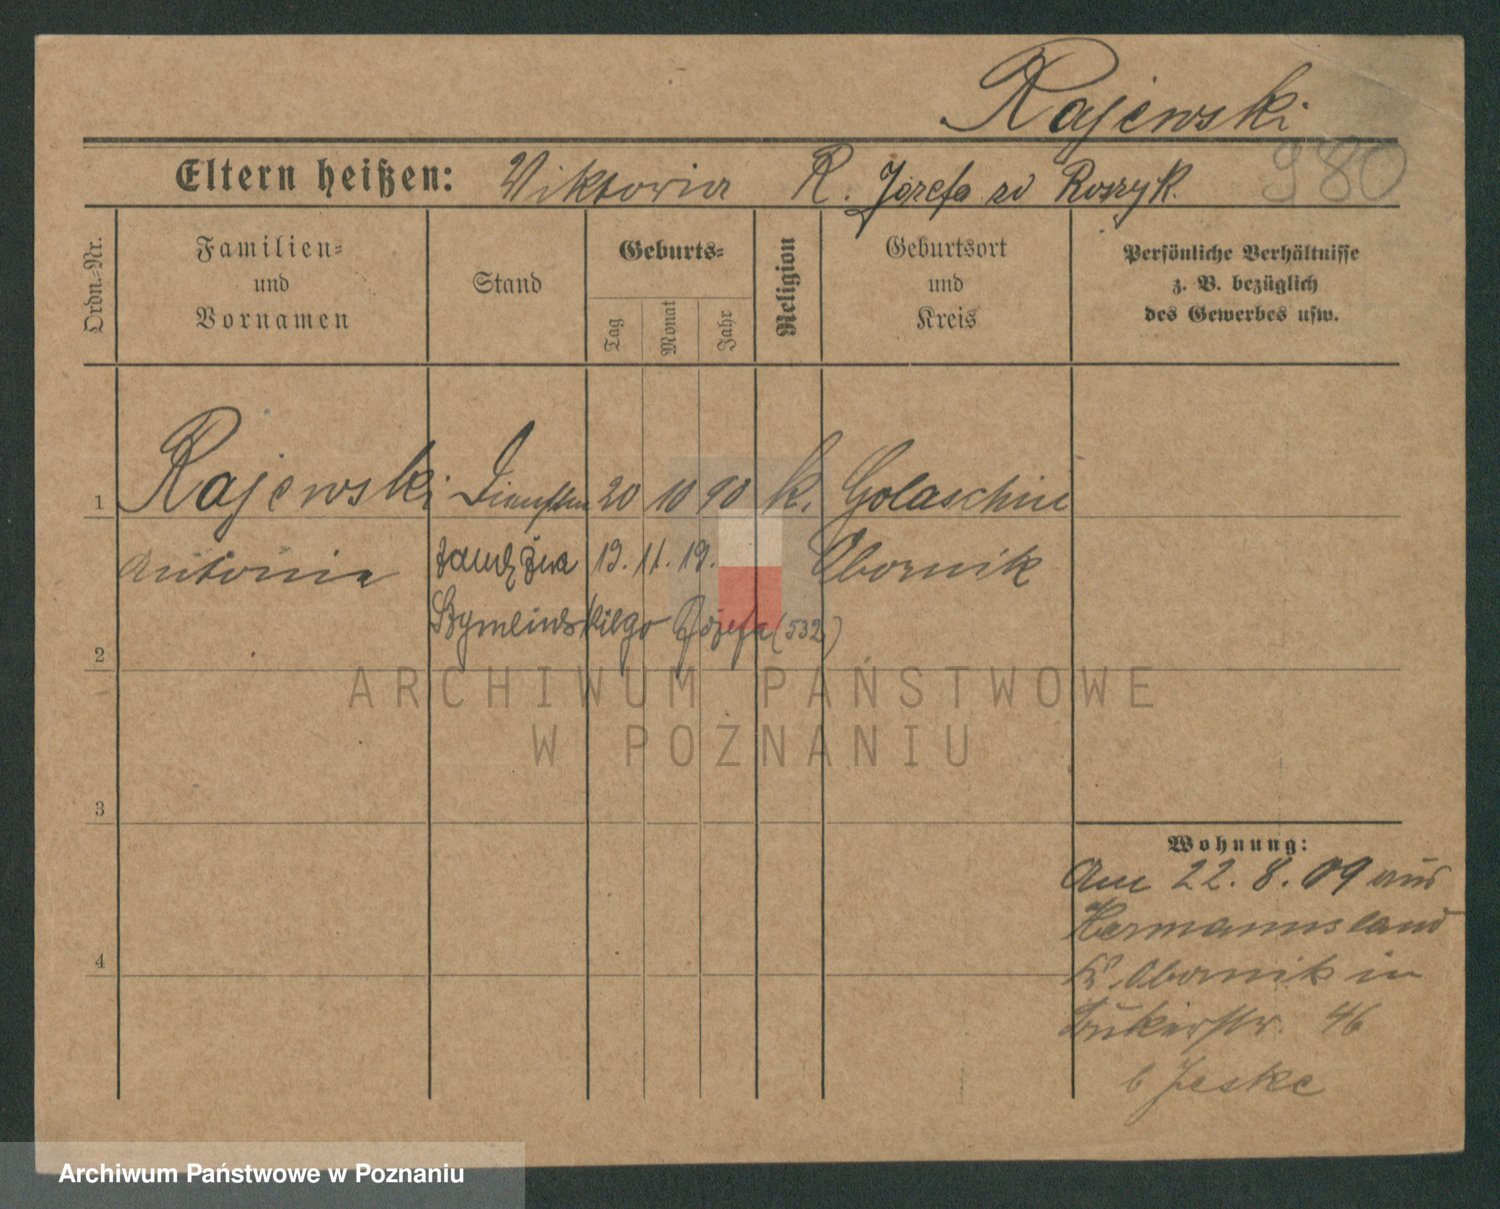 Rajewski
Eltern heißen: Viktoria R. Józefa zd Roszyk.
980
Ordn.=Nr.
Familien=
und
Vornamen
Stand
Geburts=
Tag
Monat
Jahr
Religion
Geburtsort
und
Kreis
Persönliche Verhältnisse
z. B. bezüglich
des Gewerbes usw.
1 Rajewski 20 10 90 k. Golaschin
Antonia 19. 11. 19. Obornik
Józefa (532)
2
3
4
Wohnung:
Am 22. 8. 09 aus
Hermannsland
K. Obornik in
46
b Jeske
ARCHIWUM PAŃSTWOWE
W POZNANIU
Archiwum Państwowe w Poznaniu